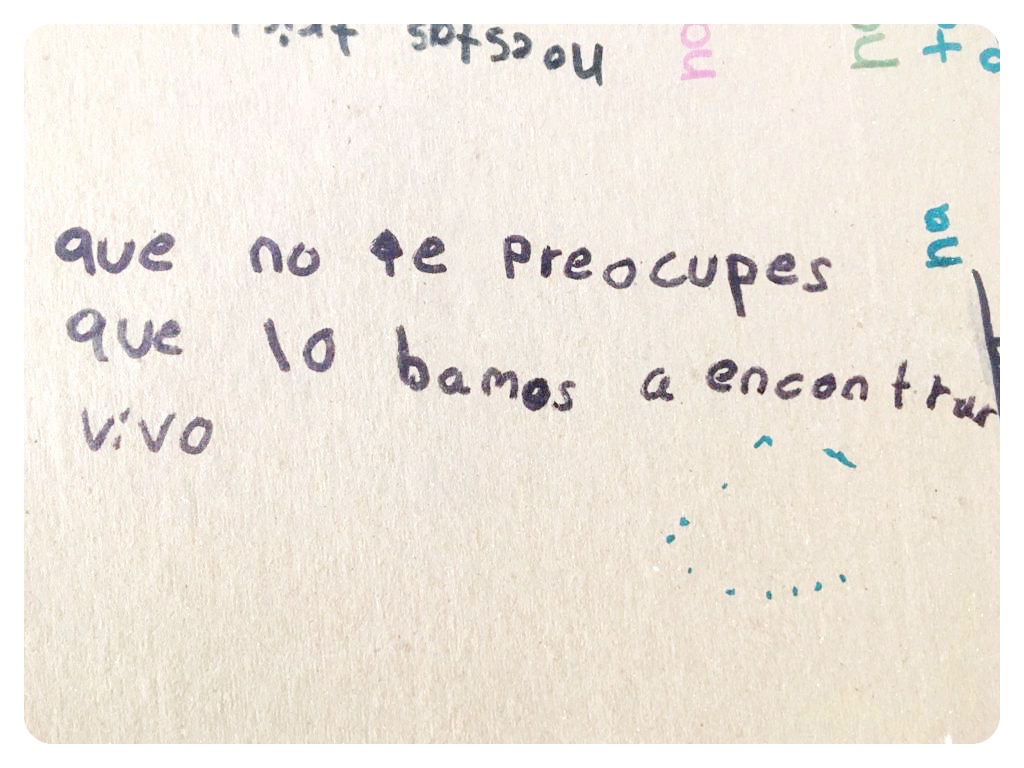 que no te preocupes
que lo bamos a encontrar
vivo
na